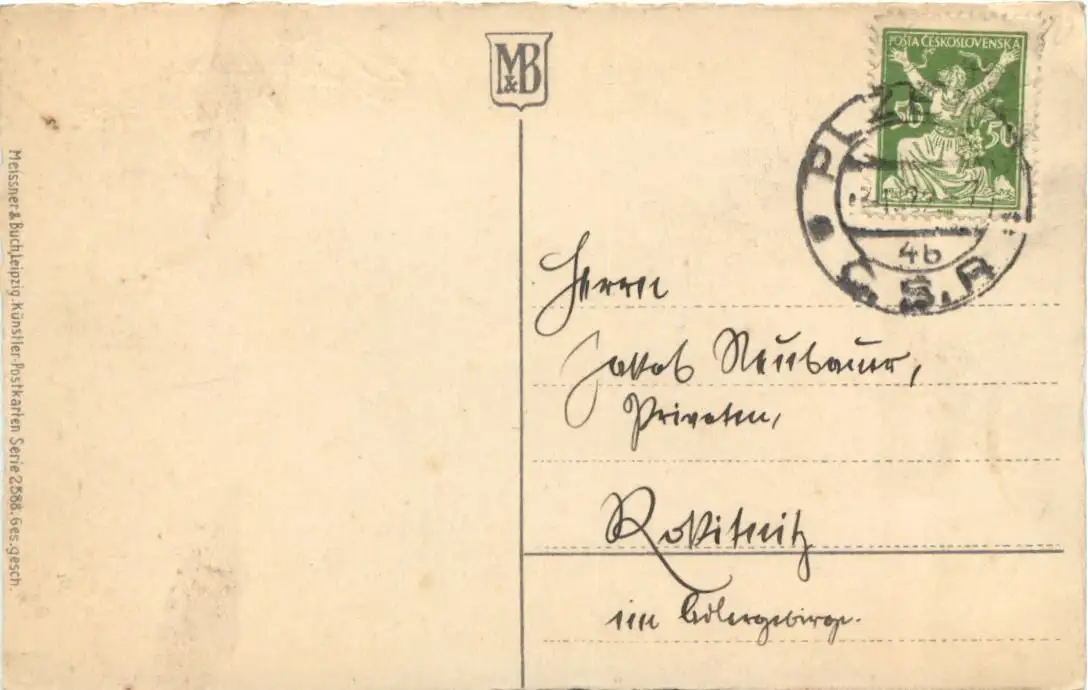 Meissner & Buch, Leipzig. Künstler-Postkarten Serie 2588. Ges. gesch.
M&B
POŠTA ČESKOSLOVENSKÁ
50 50
PLZ
4b
Č.S.R
Herrn
Jakob Neubauer,
Privaten,
Rokitnitz
im Adlergebirge.